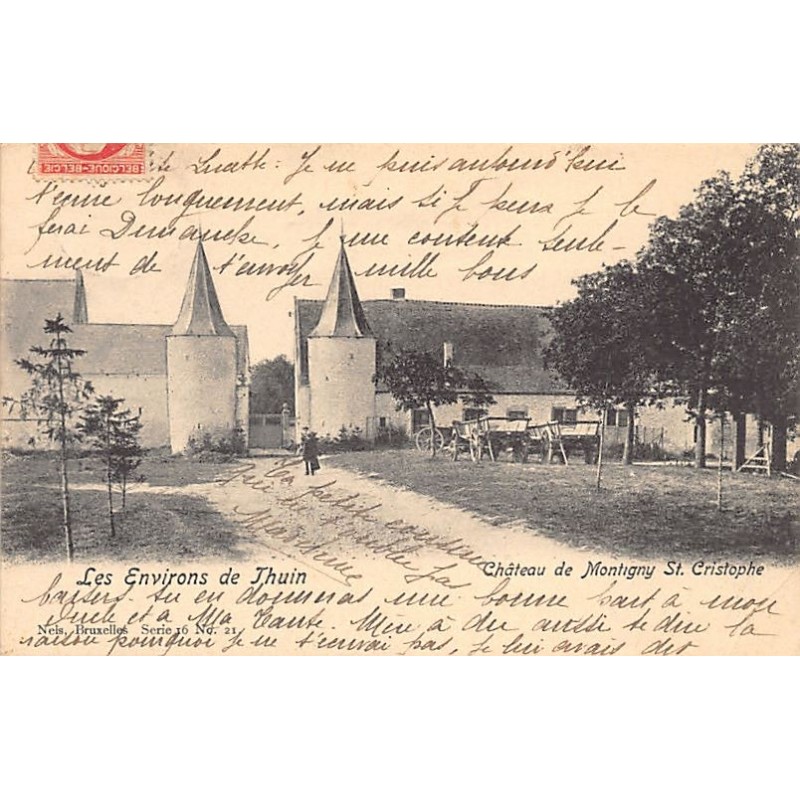 BELGIQUE-BELGIE
Lucette : Je ne puis aujourd'hui
longuement, mais si Je peux Je le
ferai Dimanche, Je me contente seule-
ment de t'envoyer mille bons
Ta petite cousine
qui ne t'oublie pas
Les Environs de Thuin
Château de Montigny St. Cristophe
baisers. Tu en donneras une bonne part à mon
Nels, Bruxelles Serie 16 No. 21
Oncle et à Ma Tante. Mère a dû aussi te dire la
raison pourquoi Je ne t'envoi pas, Je lui avais dit